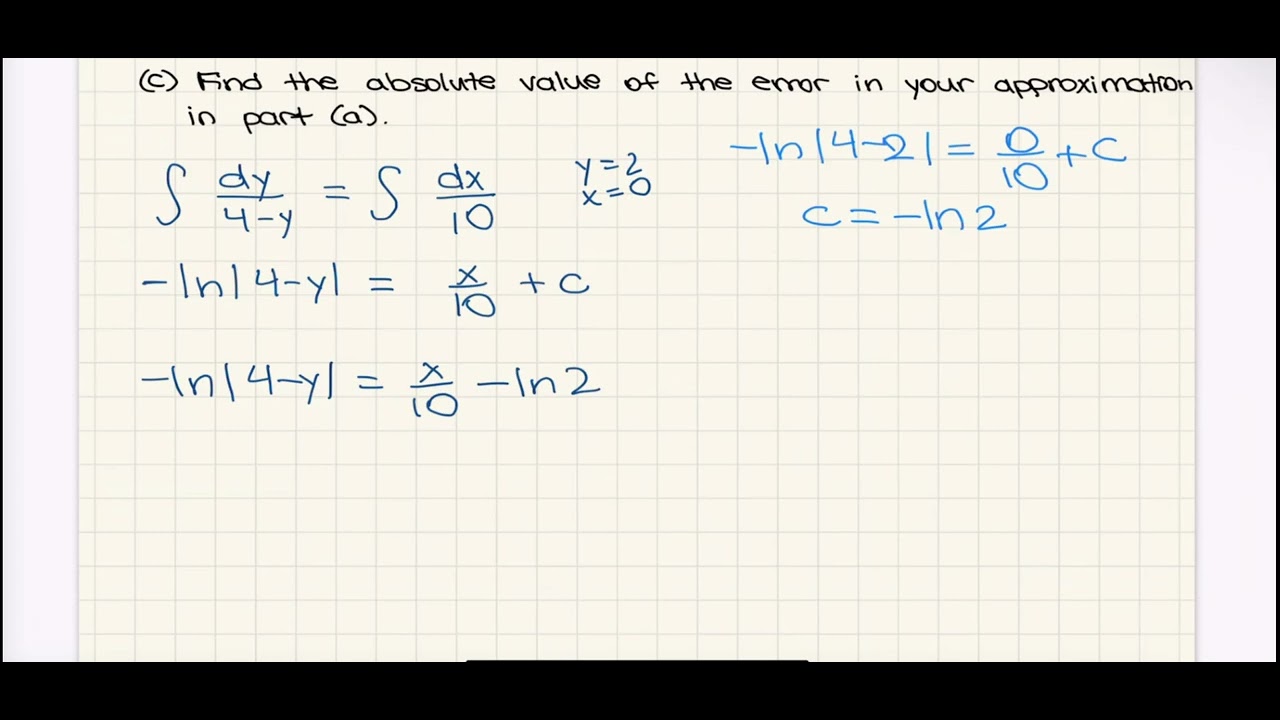 (c) Find the absolute value of the error in your approximation
in part (a).
∫ dy/(4-y) = ∫ dx/10
y=2
x=0
-ln|4-y| = x/10 + c
-ln|4-y| = x/10 - ln2
-ln|4-2| = 0/10 + c
c = -ln2